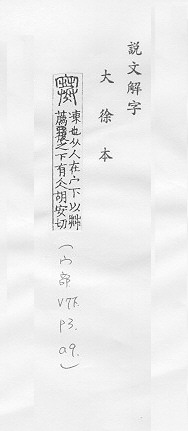 説文解字
大徐本
寒
凍也从人在宀下以茻
薦覆之下有仌胡安切
(宀部 V7下. P3. a9.)